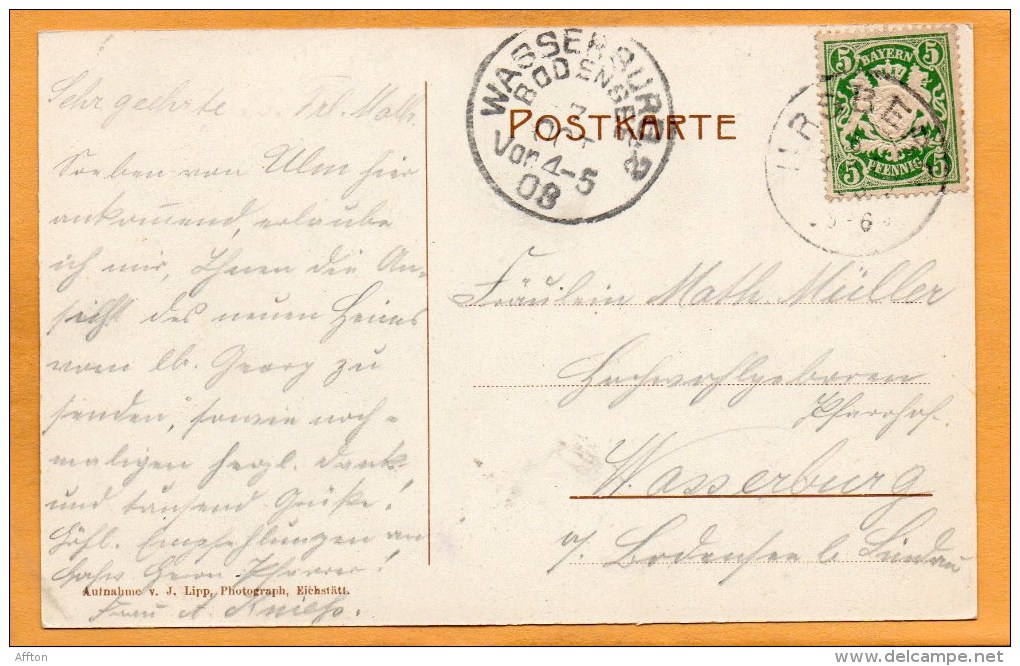 POSTKARTE
WASSERBURG
BODENSEE
Vor. 4-5
08
BAYERN
5 5
5 5
PFENNIG
Sehr geehrte Frl. Math.
Soeben von Ulm hier
ankommend, erlaube
ich mir, Ihnen die An-
sicht des neuen Heims
vom lb. Georg zu
senden, sowie noch-
maligen herzl. Dank
und tausend Grüße!
Höfl. Empfehlungen an
Herrn Pfarrer!
Frau A.
Aufnahme v. J. Lipp, Photograph, Eichstätt.
Fräulein Math. Müller
Hochwohlgeboren
Pfarrhof.
Wasserburg
a/ Bodensee b Lindau
Affton
delcampe.net